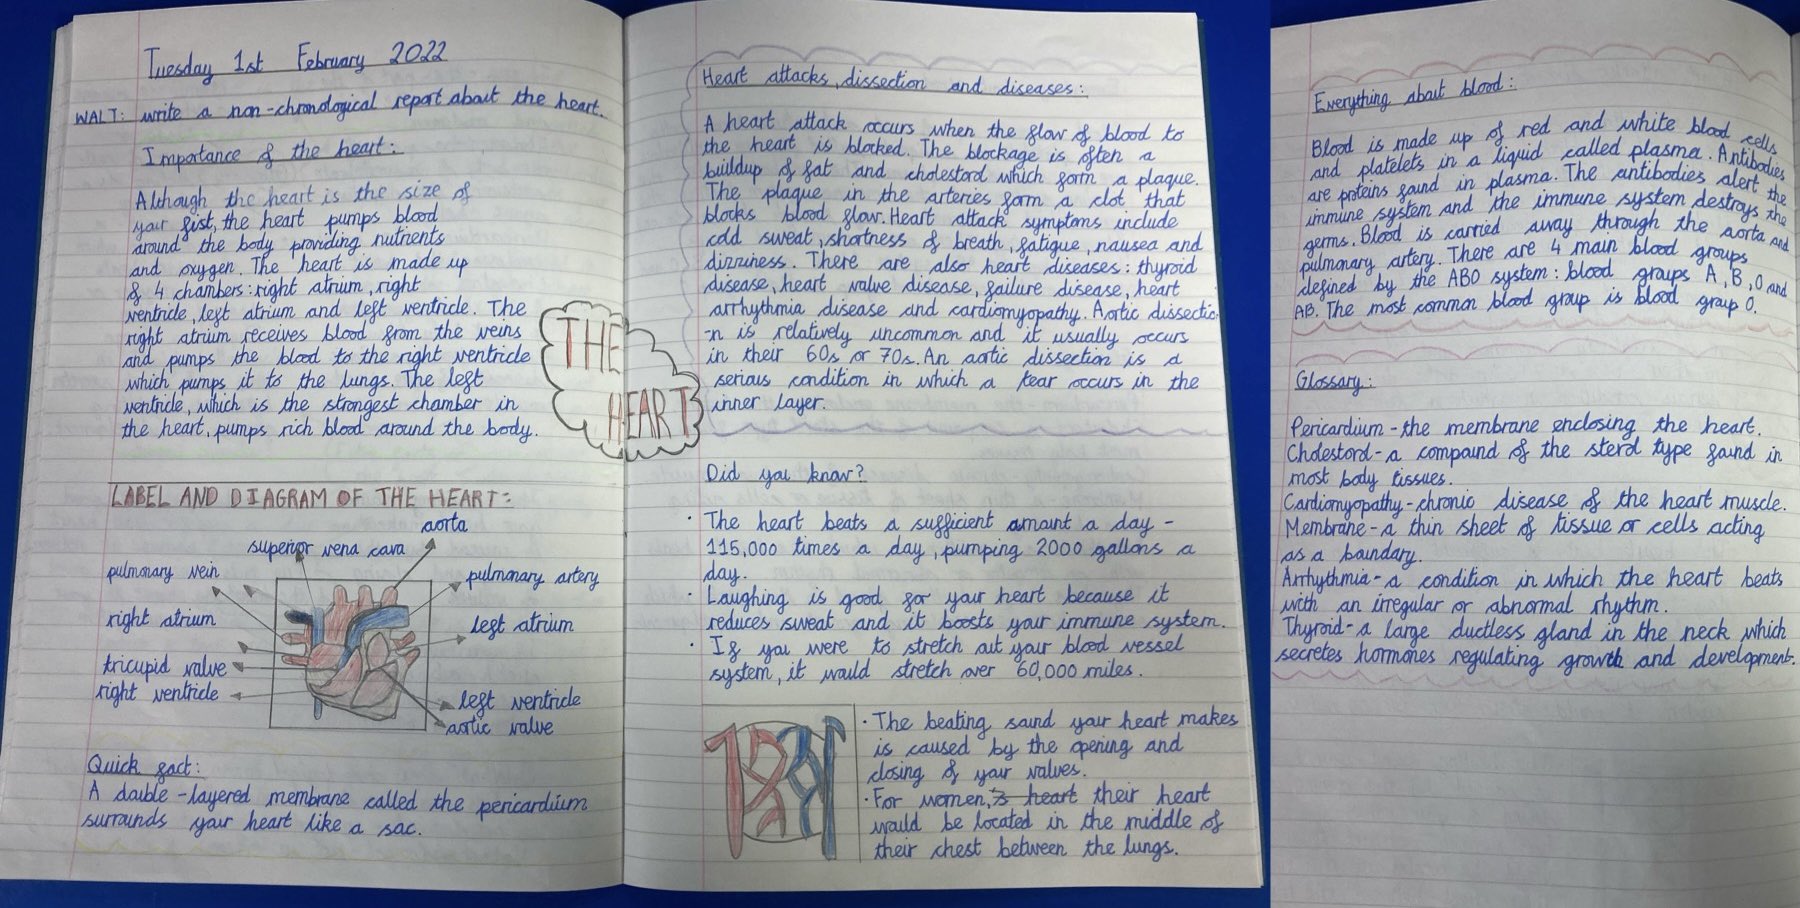 Tuesday 1st February 2022
WALT: write a non-chronological report about the heart.
Importance of the heart:
Although the heart is the size of
your fist, the heart pumps blood
around the body providing nutrients
and oxygen. The heart is made up
of 4 chambers: right atrium, right
ventricle, left atrium and left ventricle. The
right atrium receives blood from the veins
and pumps the blood to the right ventricle
which pumps it to the lungs. The left
ventricle, which is the strongest chamber in
the heart, pumps rich blood around the body.
THE
HEART
LABEL AND DIAGRAM OF THE HEART:
aorta
superior vena cava
pulmonary vein
pulmonary artery
right atrium
left atrium
tricupid valve
right ventricle
left ventricle
aortic valve
Quick fact:
A double-layered membrane called the pericardium
surrounds your heart like a sac.
Heart attacks, dissection and diseases:
A heart attack occurs when the flow of blood to
the heart is blocked. The blockage is often a
buildup of fat and cholesterol which form a plaque.
The plaque in the arteries form a clot that
blocks blood flow. Heart attack symptoms include
cold sweat, shortness of breath, fatigue, nausea and
dizziness. There are also heart diseases: thyroid
disease, heart valve disease, failure disease, heart
arrhythmia disease and cardiomyopathy. Aortic dissectio
-n is relatively uncommon and it usually occurs
in their 60s or 70s. An aortic dissection is a
serious condition in which a tear occurs in the
inner layer.
Did you know?
· The heart beats a sufficient amount a day -
115,000 times a day, pumping 2000 gallons a
day.
· Laughing is good for your heart because it
reduces sweat and it boosts your immune system.
· If you were to stretch out your blood vessel
system, it would stretch over 60,000 miles.
· The beating sound your heart makes
is caused by the opening and
closing of your valves.
· For women, heart their heart
would be located in the middle of
their chest between the lungs.
Everything about blood:
Blood is made up of red and white blood cells
and platelets in a liquid called plasma. Antibodies
are proteins found in plasma. The antibodies alert the
immune system and the immune system destroys the
germs. Blood is carried away through the aorta and
pulmonary artery. There are 4 main blood groups
defined by the ABO system: blood groups A, B, O and
AB. The most common blood group is blood group O.
Glossary:
Pericardium - the membrane enclosing the heart.
Cholesterol - a compound of the sterol type found in
most body tissues.
Cardiomyopathy - chronic disease of the heart muscle.
Membrane - a thin sheet of tissue or cells acting
as a boundary.
Arrhythmia - a condition in which the heart beats
with an irregular or abnormal rhythm.
Thyroid - a large ductless gland in the neck which
secretes hormones regulating growth and development.